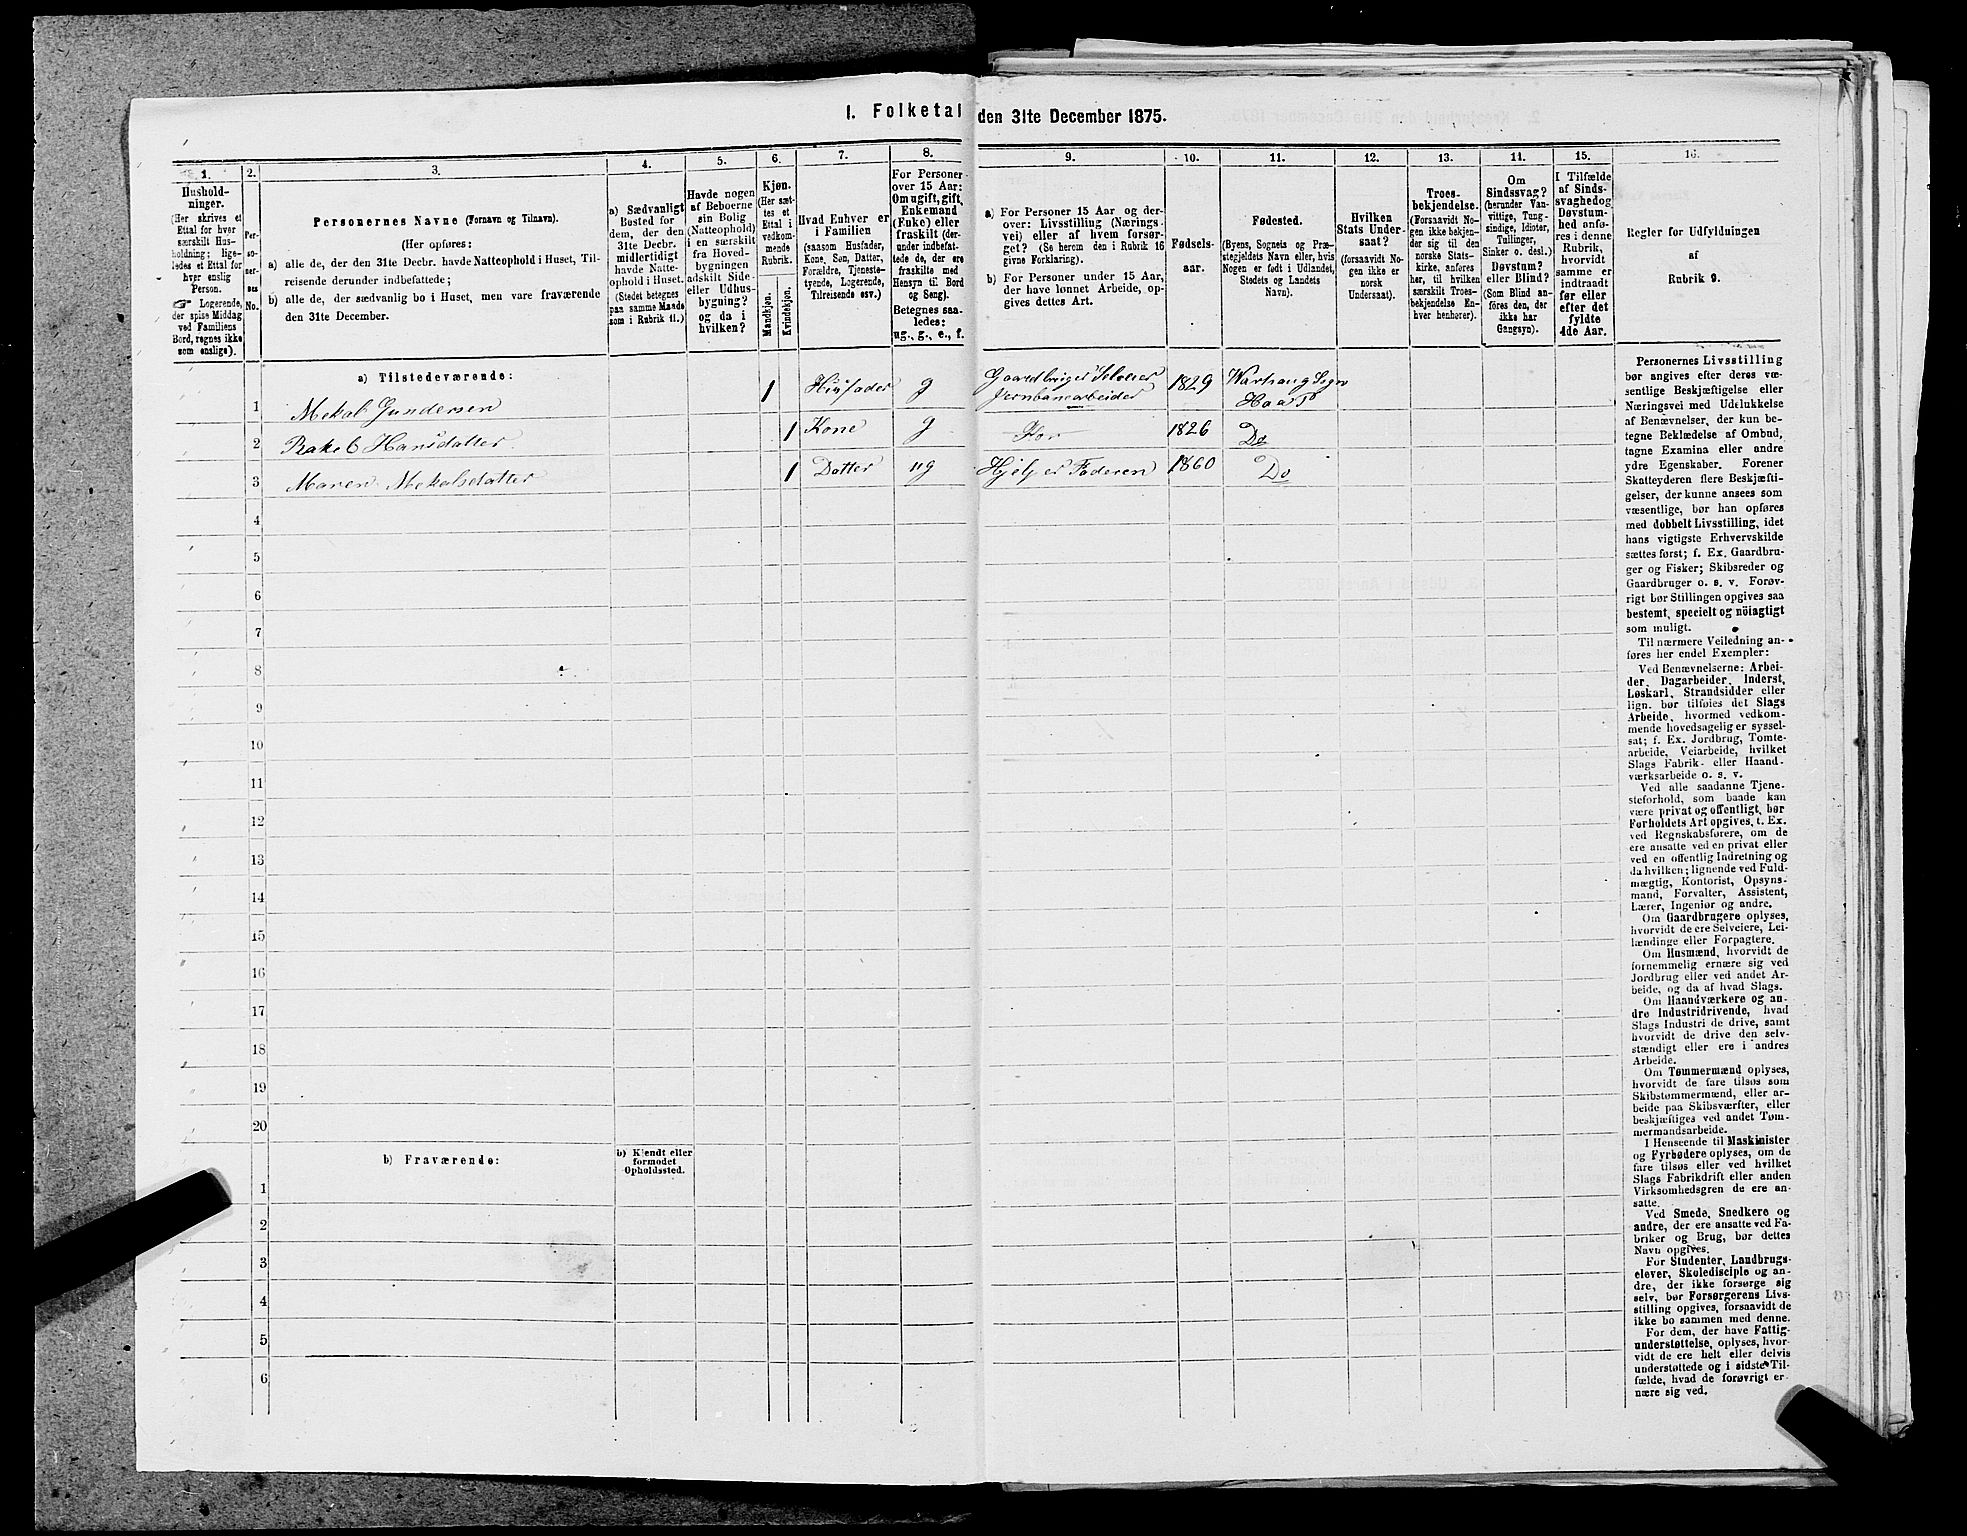 I. Folketal den 31te December 1875.
1.
Hushold-
ninger.
(Her skrives et
Ettal for hver
særskilt Hus-
holdning; lige-
ledes et Ettal for
hver enslig
Person.
☞ Logerende,
der spise Middag
ved Familiens
Bord, regnes ikke
som enslige).
2.
Per-
so-
ner-
nes
No.
3.
Personernes Navne (Fornavn og Tilnavn).
(Her opføres:
a) alle de, der den 31te Decbr. havde Natteophold i Huset, Til-
reisende derunder indbefattede;
b) alle de, der sædvanlig bo i Huset, men vare fraværende
den 31te December.
4.
a) Sædvanligt
Bosted for
dem, der den
31te Decbr.
midlertidigt
havde Natte-
ophold i Huset.
(Stedet betegnes
paa samme Maade
som i Rubrik 11.)
5.
Havde nogen
af Beboerne
sin Bolig
(Natteophold)
i en særskilt
fra Hoved-
bygningen
adskilt Side-
eller Udhus-
bygning?
og da i
hvilken?
6.
Kjøn.
(Her sæt-
tes et
Ettal i
vedkom-
mende
Rubrik.
Mandkjøn.
Kvindekjøn.
7.
Hvad Enhver er
i Familien
(saasom Husfader,
Kone, Søn, Datter,
Forældre, Tjeneste-
tyende, Logerende,
Tilreisende osv.)
8.
For Personer
over 15 Aar:
Om ugift, gift,
Enkemand
(Enke) eller
fraskilt (der-
under indbefat-
tede de, der ere
fraskilte med
Hensyn til Bord
og Seng).
Betegnes saa-
ledes:
ug., g., e., f.
9.
a) For Personer 15 Aar og der-
over: Livsstilling (Nærings-
vei) eller af hvem forsør-
get? (Se herom den i Rubrik 16
givne Forklaring).
b) For Personer under 15 Aar,
der have lønnet Arbeide, op-
gives dettes Art.
10.
Fødsels-
aar.
11.
Fødested.
(Byens, Sognets og Præ-
stegjeldets Navn eller, hvis
Nogen er født i Udlandet,
Stedets og Landets
Navn).
12.
Hvilken
Stats Under-
saat?
(forsaavidt No-
gen ikke er
norsk
Undersaat).
13.
Troes-
bekjendelse.
(Forsaavidt No-
gen ikke bekjen-
der sig til den
norske Stats-
kirke, anføres
her, til hvilken
særskilt Troes-
bekjendelse En-
hver henhører).
14.
Om
Sindssvag?
(herunder Van-
vittige, Tung-
sindige, Idioter,
Tullinger,
Sinker o. desl.).
Døvstum?
eller Blind?
(Som Blind an-
føres den, der
ikke har
Gangsyn).
15.
I Tilfælde
af Sinds-
svaghed og
Døvstum-
hed anfø-
res i denne
Rubrik,
hvorvidt
samme er
indtraadt
før eller
efter det
fyldte
4de Aar.
16.
Regler for Udfyldningen
af
Rubrik 9.
a) Tilstedeværende:
1 Mekal Gundersen 1 Husfader g Gaardbruger Selveier
Jernbanearbeider 1829 Warhaug Sogn
Haa P
2 Rakel Hansdatter 1 Kone g 1826 Do
3 Maren Mekalsdatter 1 Datter ug Hjelper Faderen 1860 Do
4
5
6
7
8
9
10
11
12
13
14
15
16
17
18
19
20
b) Fraværende:
b) Kjendt eller
formodet
Opholdssted.
1
2
3
4
5
6
Personernes Livsstilling
bør angives efter deres væ-
sentlige Beskjæftigelse eller
Næringsvei med Udelukkelse
af Benævnelser, der kun be-
tegne Beklædelse af Ombud,
tagne Examina eller andre
ydre Egenskaber. Forener
Skatteyderen flere Beskjæfti-
gelser, der kunne ansees som
væsentlige, bør han opføres
med dobbelt Livsstilling, idet
hans vigtigste Erhvervskilde
sættes først; f. Ex. Gaardbru-
ger og Fisker; Skibsreder og
Gaardbruger o. s. v. Forøv-
rigt bør Stillingen opgives saa
bestemt, specielt og nöiagtigt
som muligt.
Til nærmere Veiledning an-
føres her endel Exempler:
Ved Benævnelserne: Arbei-
der, Dagarbeider, Inderst,
Løskarl, Strandsidder eller
lign. bør tilføies det Slags
Arbeide, hvormed vedkom-
mende hovedsagelig er syssel-
sat; f. Ex. Jordbrug, Tomte-
arbeide, Veiarbeide, hvilket
Slags Fabrik- eller Haand-
værksarbeide o. s. v.
Ved alle saadanne Tjene-
steforhold, som baade kan
være privat og offentligt, bør
Forholdets Art opgives, t. Ex.
ved Regnskabsførere, om de
ere ansatte ved en privat eller
ved en offentlig Indretning og
da hvilken; lignende ved Fuld-
mægtig, Kontorist, Opsyns-
mand, Forvalter, Assistent,
Lærer, Ingeniør og andre.
Om Gaardbrugere oplyses,
hvorvidt de ere Selveiere, Lei-
lændinge eller Forpagtere.
Om Husmænd, hvorvidt de
fornemmelig ernære sig ved
Jordbrug eller ved andet Ar-
beide, og da af hvad Slags.
Om Haandværkere og an-
dre Industridrivende, hvad
Slags Industri de drive, samt
hvorvidt de drive den selv-
stændigt eller ere i andres
Arbeide.
Om Tømmermænd oplyses,
hvorvidt de fare tilsøs som
Skibstømmermænd, eller ar-
beide paa Skibsværfter, eller
beskjæftiges ved andet Tøm-
mermandsarbeide.
I Henseende til Maskinister
og Fyrbødere oplyses, om de
fare tilsøs eller ved hvilket
Slags Fabrikdrift eller anden
Virksomhedsgren de ere an-
satte.
Ved Smede, Snedkere og
andre, der ere ansatte ved Fa-
briker og Brug, bør dettes
Navn opgives.
For Studenter, Landbrugs-
elever, Skoledisciple og an-
dre, der ikke forsørge sig
selv, bør Forsørgerens Livs-
stilling opgives, forsaavidt de
ikke bo sammen med denne.
For dem, der have Fattig-
understøttelse, oplyses, hvor-
vidt de ere helt eller delvis
understøttede og i sidste Til-
fælde, hvad de forøvrigt er-
nære sig ved.